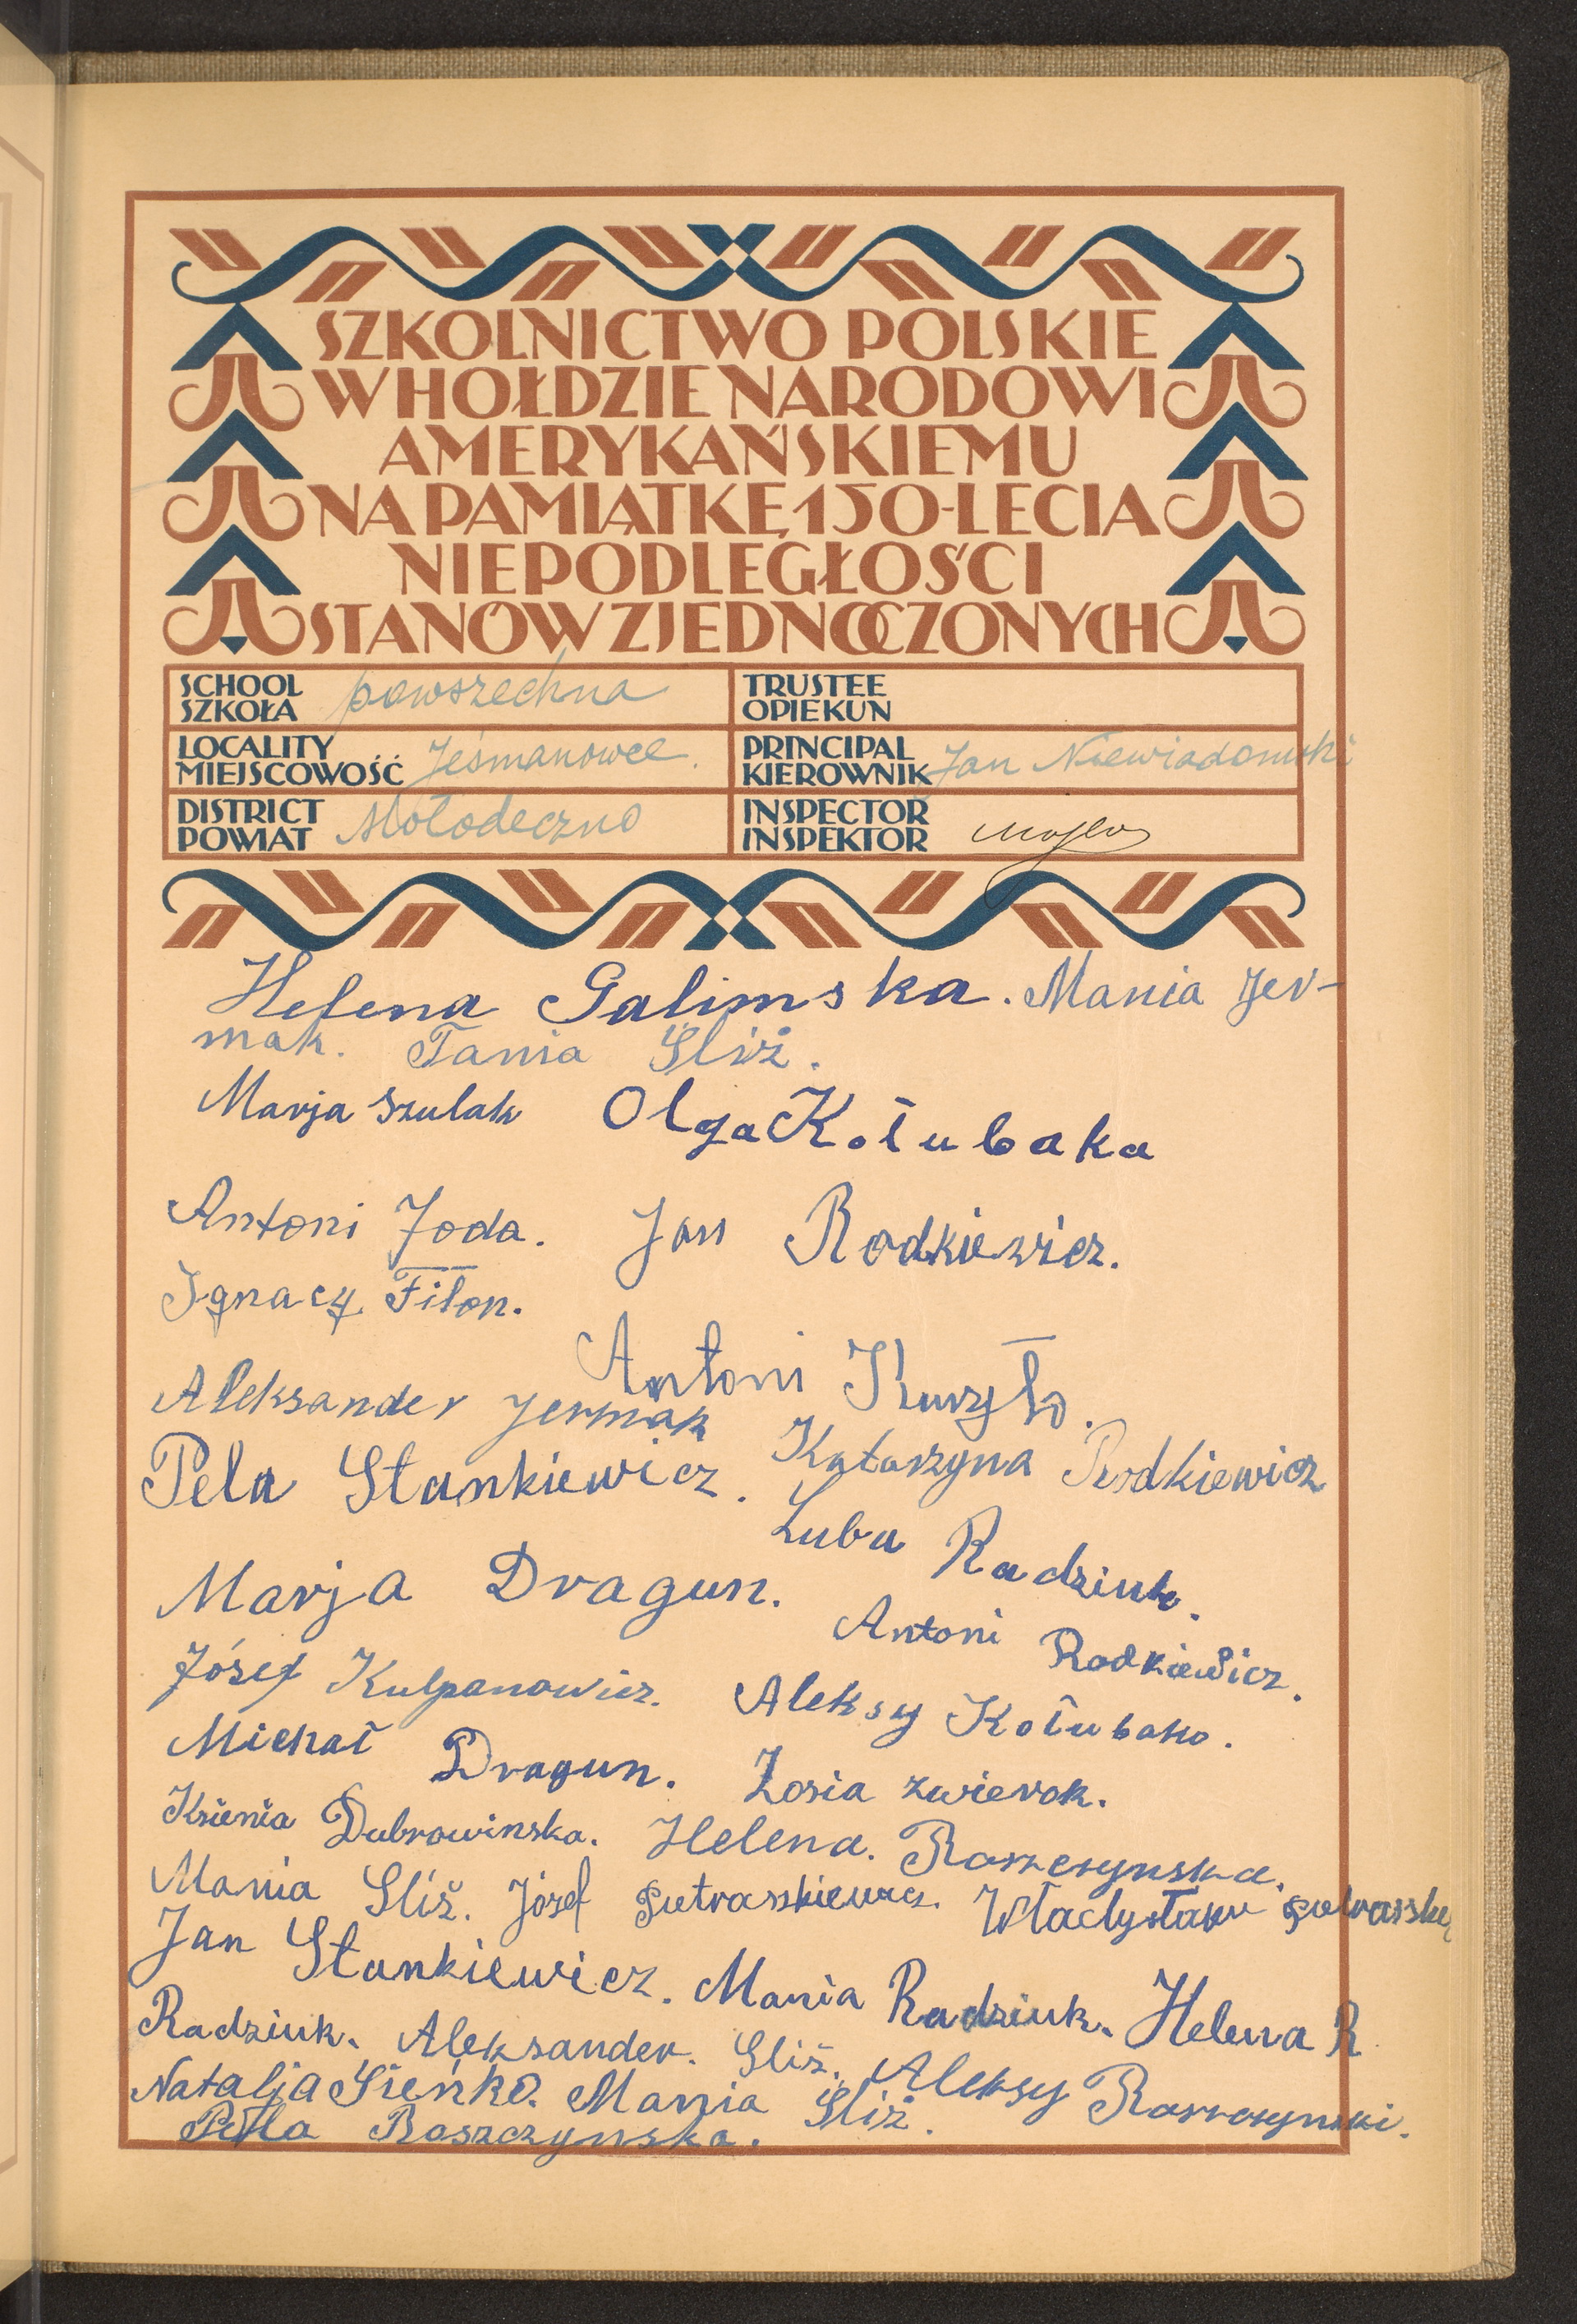 SZKOLNICTWO POLSKIE
W HOŁDZIE NARODOWI
AMERYKAŃSKIEMU
NA PAMIĄTKĘ 150-LECIA
NIEPODLEGŁOŚCI
STANÓW ZJEDNOCZONYCH
SCHOOL
SZKOŁA powszechna
TRUSTEE
OPIEKUN
LOCALITY
MIEJSCOWOŚĆ Jeśmanowce.
PRINCIPAL
KIEROWNIK Jan Niewiadomski
DISTRICT
POWIAT Mołodeczno
INSPECTOR
INSPEKTOR
Helena Galimska. Mania Jer-
mak. Tania Śliż.
Marja Szulak Olga Kołubaka
Antoni Joda. Jan Rodkiewicz.
Ignacy Fiłon.
Antoni Kuryło.
Aleksander Jermak
Katarzyna Rodkiewicz
Pela Stankiewicz.
Luba Radziuk.
Marja Dragun.
Antoni Rodkiewicz.
Józef Kulpanowicz. Aleksy Kołubako.
Michał Dragun. Zosia Zwierok.
Ksienia Dubrowinska. Helena. Raszczynska.
Mania Śliż. Józef Pietraszkiewicz. Władysław
Jan Stankiewicz. Mania Radziuk. Helena R
Radziuk. Aleksander. Śliż. Aleksy Raszczynski.
Natalja Sieńko. Mania Śliż.
Raszczynska.